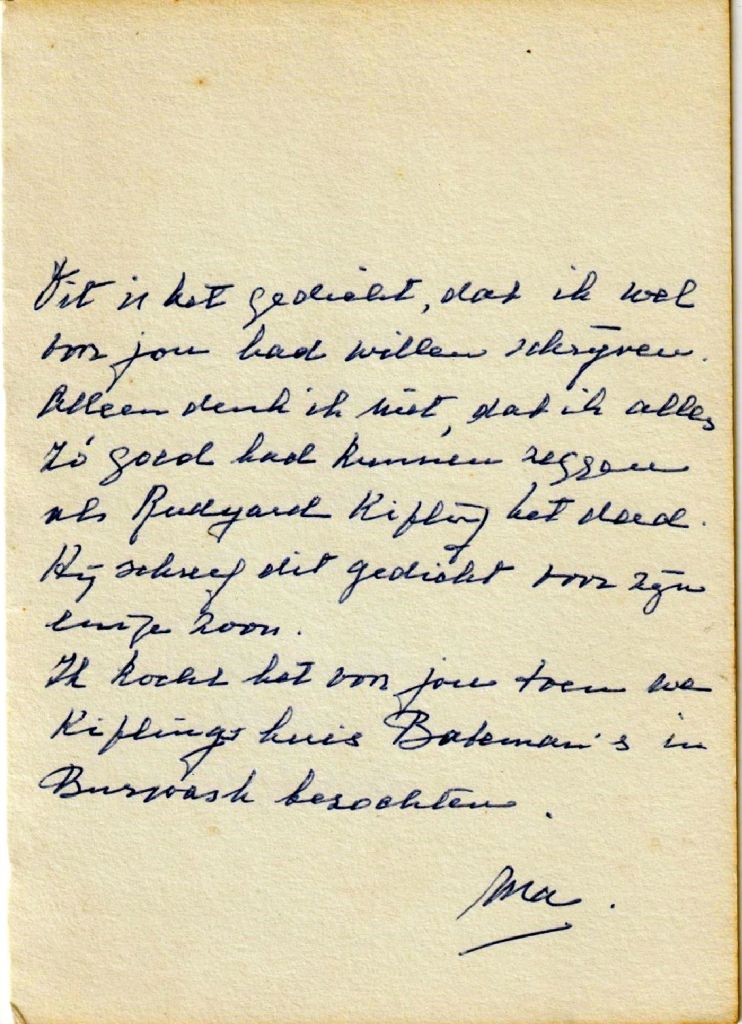 Dit is het gedicht, dat ik wel
voor jou had willen schrijven.
Alleen denk ik niet, dat ik alles
zó goed had kunnen zeggen
als Rudyard Kipling het deed.
Hij schreef dit gedicht voor zijn
enige zoon.
Ik kocht het voor jou toen we
Kiplings huis Bateman's in
Burwash bezochten.
Ma.